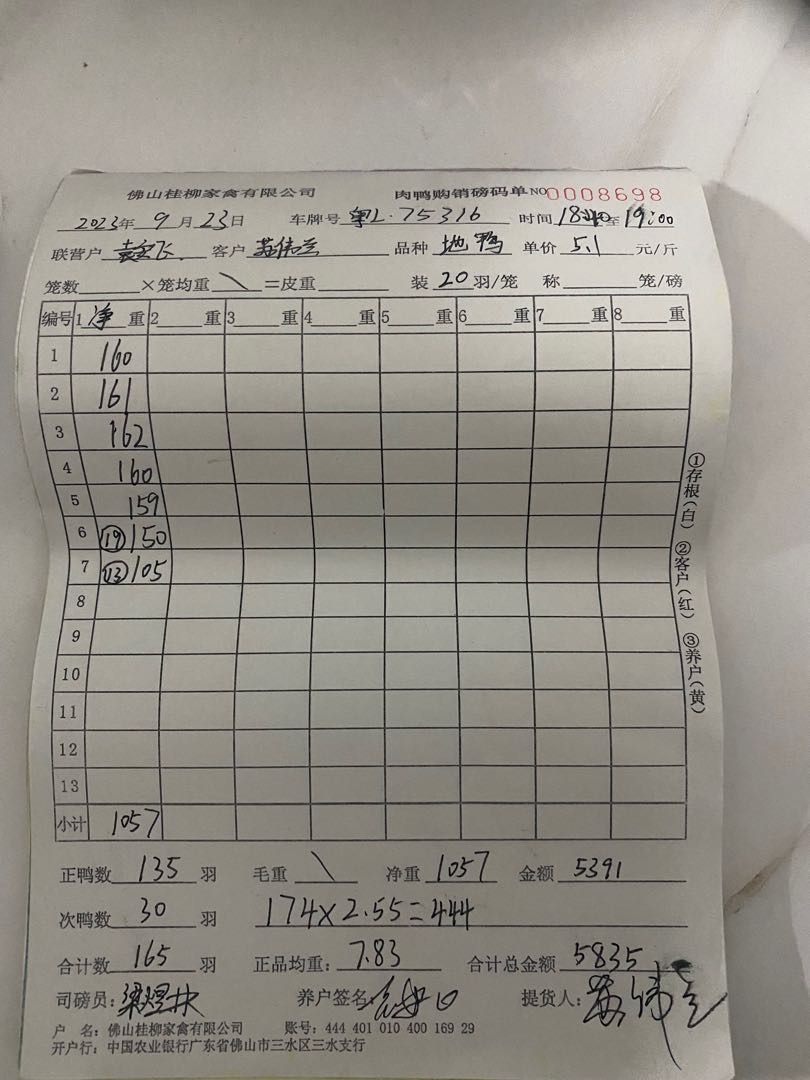 佛山桂柳家禽有限公司 肉鸭购销磅码单 NO 0008698
2023年 9月 23日 车牌号 粤L·75316 时间 18:40 至 19:00
联营户 飞 客户 苏伟 品种 地鸭 单价 5.1 元/斤
笼数 ×笼均重 \ =皮重 装 20 羽/笼 称 笼/磅
编号 1 净 重 2 重 3 重 4 重 5 重 6 重 7 重 8 重
1 160
2 161
3 162
4 160
5 159
6 ⑲ 150
7 ⑬ 105
8
9
10
11
12
13
小计 1057
①存根(白) ②客户(红) ③养户(黄)
正鸭数 135 羽 毛重 \ 净重 1057 金额 5391
次鸭数 30 羽 174×2.55=444
合计数 165 羽 正品均重: 7.83 合计总金额 5835
司磅员: 梁煜 养户签名 提货人: 苏伟
户 名: 佛山桂柳家禽有限公司 账号: 444 401 010 400 169 29
开户行: 中国农业银行广东省佛山市三水区三水支行